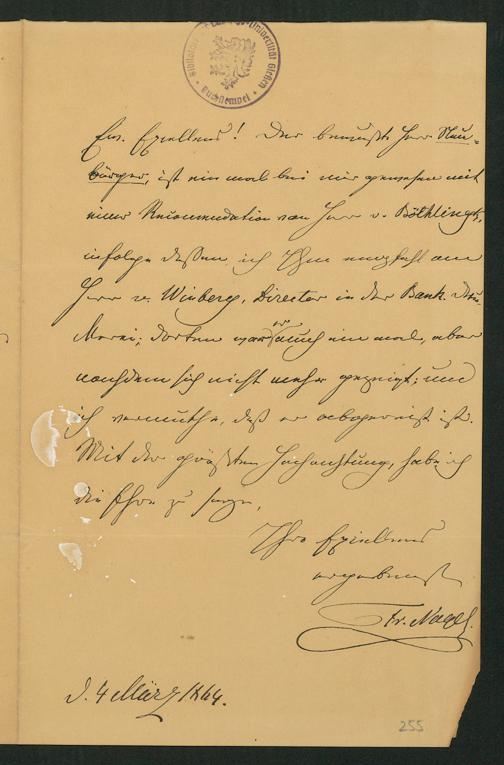 Bibliothek Universität Gießen
Buchstempel
Ew. Exzellenz! Der bewußte Herr Neu-
bürger, ist ein mal bei mir gewesen mit
einer Recommendation von Herr v. Böthlingk,
infolge dessen ich Ihm empfahl an
Herr v. Winberg, Director in der Bank. Dru-
kerei; dorten war er auch ein mal, aber
nachdem sich nicht mehr gezeigt; und
ich vermuthe, daß er abgereist ist.
Mit der größten Hochachtung, habe ich
die Ehre zu seyn,
Ihro Exzellenz
ergebenst
Fr. Nagel.
d. 4 März 1864.
255